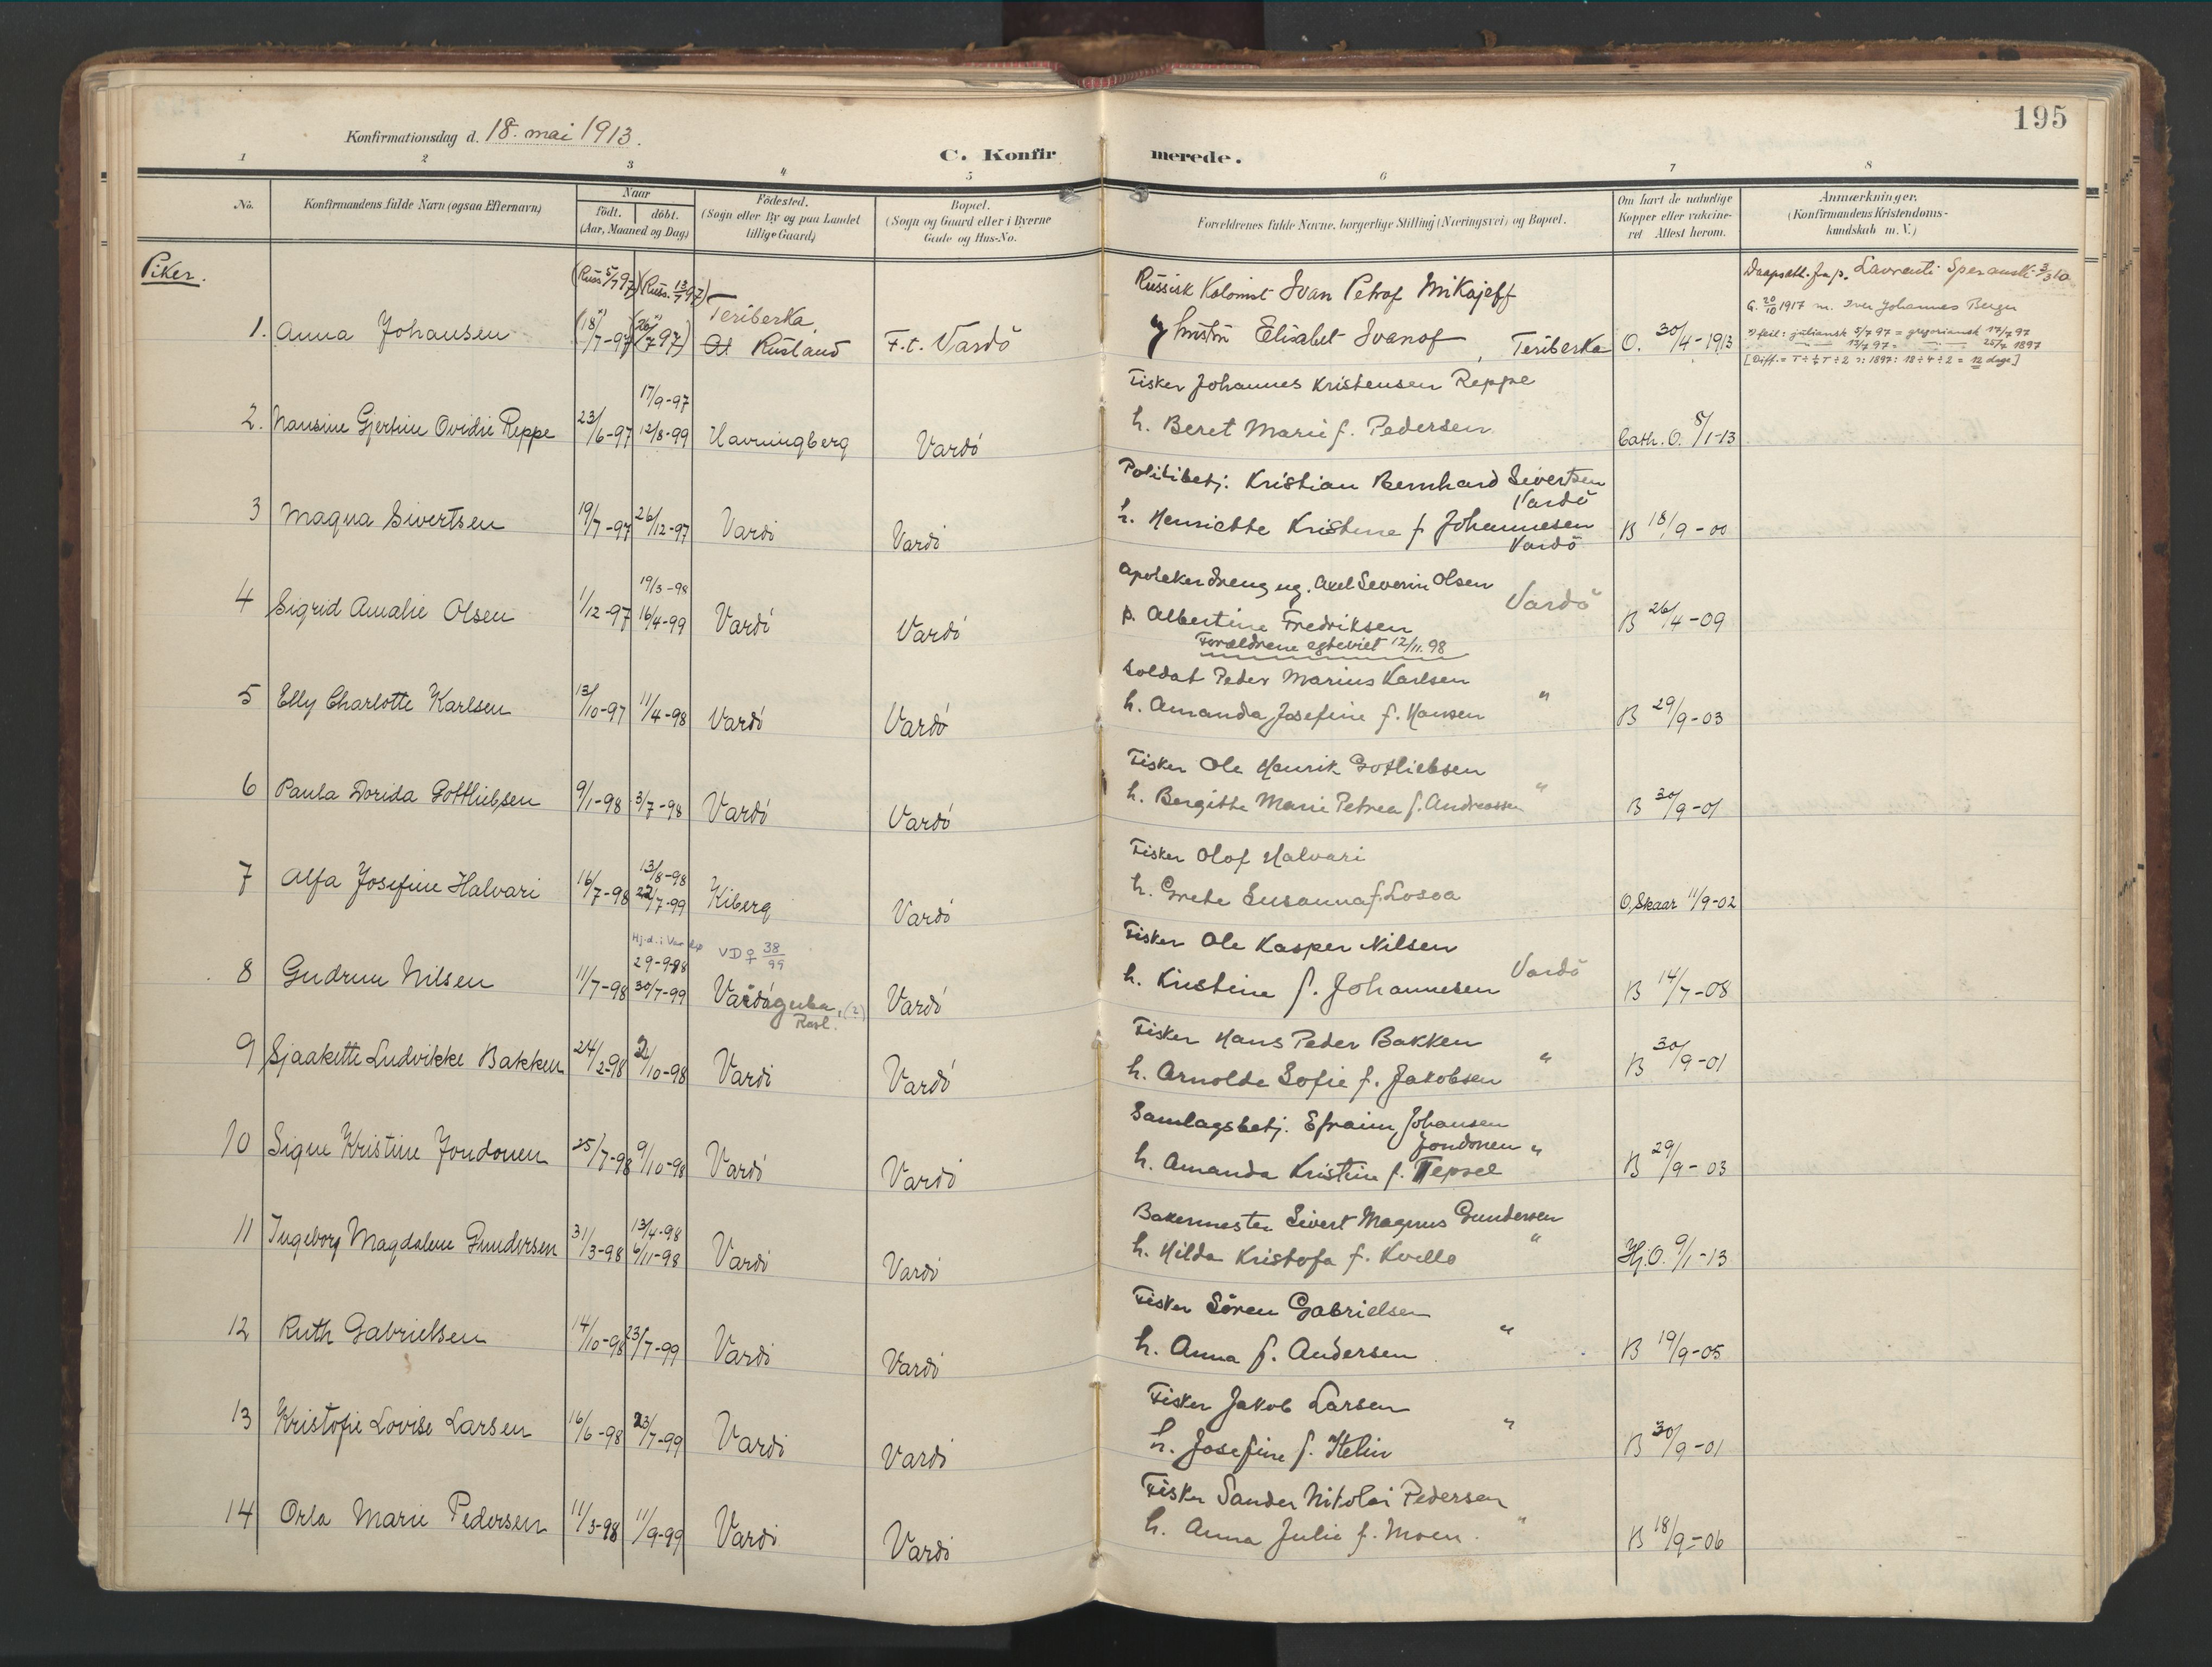 195
Konfirmationsdag d. 18. mai 1913.
C. Konfirmerede.
1 2 3 4 5 6 7 8
No.
Konfirmandens fulde Navn (ogsaa Efternavn)
Naar
födt. döbt.
(Aar, Maaned og Dag)
Födested.
(Sogn eller By og paa Landet
tillige Gaard)
Bopæl.
(Sogn og Gaard eller i Byerne
Gade og Hus-No.
Forældrenes fulde Navne, borgerlige Stilling (Næringsvei) og Bopæl.
Om havt de naturlige
Kopper eller vakcine-
ret Attest herom.
Anmærkninger.
(Konfirmandens Kristendoms-
kundskab m. V.)
Piker.
(Russ. 5/7 97) (Russ. 13/7 97)
Teriberka,
Russisk Kolonist Ivan Petrof Mikajeff
Daapsatt. fra p. Lavrenti Speranski 3/3 10
1. Anna Johansen (18/7-97) (26/7 97) Rusland F.t. Vardö
og hustru Elisabet Ivanof, Teriberka O. 30/4-1913
G. 20/10 1917 m. Iver Johannes Berger
*) feil: juliansk 5/7 97 = gregoriansk 17/7 97
13/7 97 = 25/7 1897
1897: 18÷4÷2 = 12 dage]
Fisker Johannes Kristensen Reppe
17/9-97
2. Nansine Gjertine Ovidie Reppe 23/6-97 12/8-99 Havningberg Vardö
h. Beret Marie f. Pedersen Cath. O. 8/1-13
Politibetj. Kristian Bernhard Sivertsen
Vardö
3 Magna Sivertsen 19/7-97 26/12-97 Vardö Vardö
h. Henriette Kristine f Johannesen B 18/9-00
Vardö
Apotekerdreng ug. Axel Severin Olsen
19/3-98
4 Sigrid Amalie Olsen 1/12-97 16/4-99 Vardö Vardö
p. Albertine Fredriksen Vardö B 26/4-09
Forældrene egteviet 12/11.98
Soldat Peder Marius Karlsen
5 Elly Charlotte Karlsen 13/10-97 11/4-98 Vardö Vardö
h. Amanda Josefine f. Hansen " B 29/9-03
Fisker Ole Henrik Gottliebsen
6 Paula Dorida Gottliebsen 9/1-98 3/7-98 Vardö Vardö
h. Bergitte Marie Petrea f. Andreassen " B 30/9-01
Fisker Olof Halvari
13/8-98
7 Alfa Josefine Halvari 16/7-98 22/7-99 Kiberg Vardö
h. Grete Susanna f. Losoa O, Skaar 11/9-02
Fisker Ole Kasper Nilsen
Hj.d. i Vardø VD♀ 38/99
29-9-98
8 Gudrun Nilsen 11/7-98 30/7-99 Vaidaguba, (?) Vardö
Rusl.
h. Kristine f. Johannesen Vardö B 14/7-08
Fisker Hans Peder Bakken
9 Sjaakette Ludvikke Bakken 24/2-98 2/10-98 Vardö Vardö
h. Arnolde Sofie f. Jakobsen " B 30/9-01
Samlagsbetj. Efraim Johansen
Jondonen "
10 Signe Kristine Jondonen 25/7-98 9/10-98 Vardö Vardö
h. Amanda Kristine f. Tepsel B 29/9-03
Bakermester Sivert Magnus Gundersen
13/4-98
11 Ingeborg Magdalene Gundersen 31/3-98 6/11-98 Vardö Vardö
h. Hilda Kristofa f. Kvello " Hj. O. 9/1-13
Fisker Sören Gabrielsen
12 Ruth Gabrielsen 14/10-98 23/7-99 Vardö Vardö
h. Anna f. Andersen " B 19/9-05
Fisker Jakob Larsen
13 Kristofie Lovise Larsen 16/6-98 23/7-99 Vardö Vardö
h. Josefine f. Helin " B 30/9-01
Fisker Sander Nikolai Pedersen
14 Orla Marie Pedersen 11/3-98 11/9-99 Vardö Vardö
h. Anna Julie f. Moen. " B 18/9-06